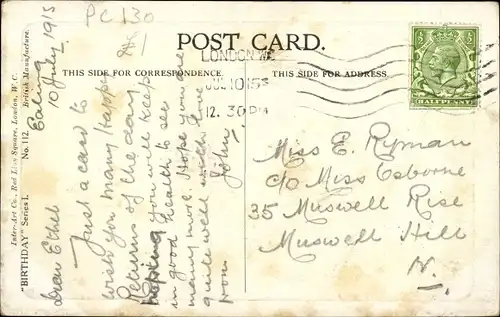 PC 130
POST CARD.
THIS SIDE FOR CORRESPONDENCE.
THIS SIDE FOR ADDRESS.
LONDON
JUL 10 15
12.30 PM
HALFPENNY
Ealing
10 July 1915
Dear Ethel
Just a card to
wish you many happy
Returns of the day,
hoping you will keep
in good health to see
many more. Hope you are
quite well with love
from
John
Miss E. Ryman
c/o Miss Osborne
35 Muswell Rise
Muswell Hill
N.
Inter-Art Co., Red Lion Square, London, W.C.
British Manufacture.
"BIRTHDAY" Series I.
No. 112.